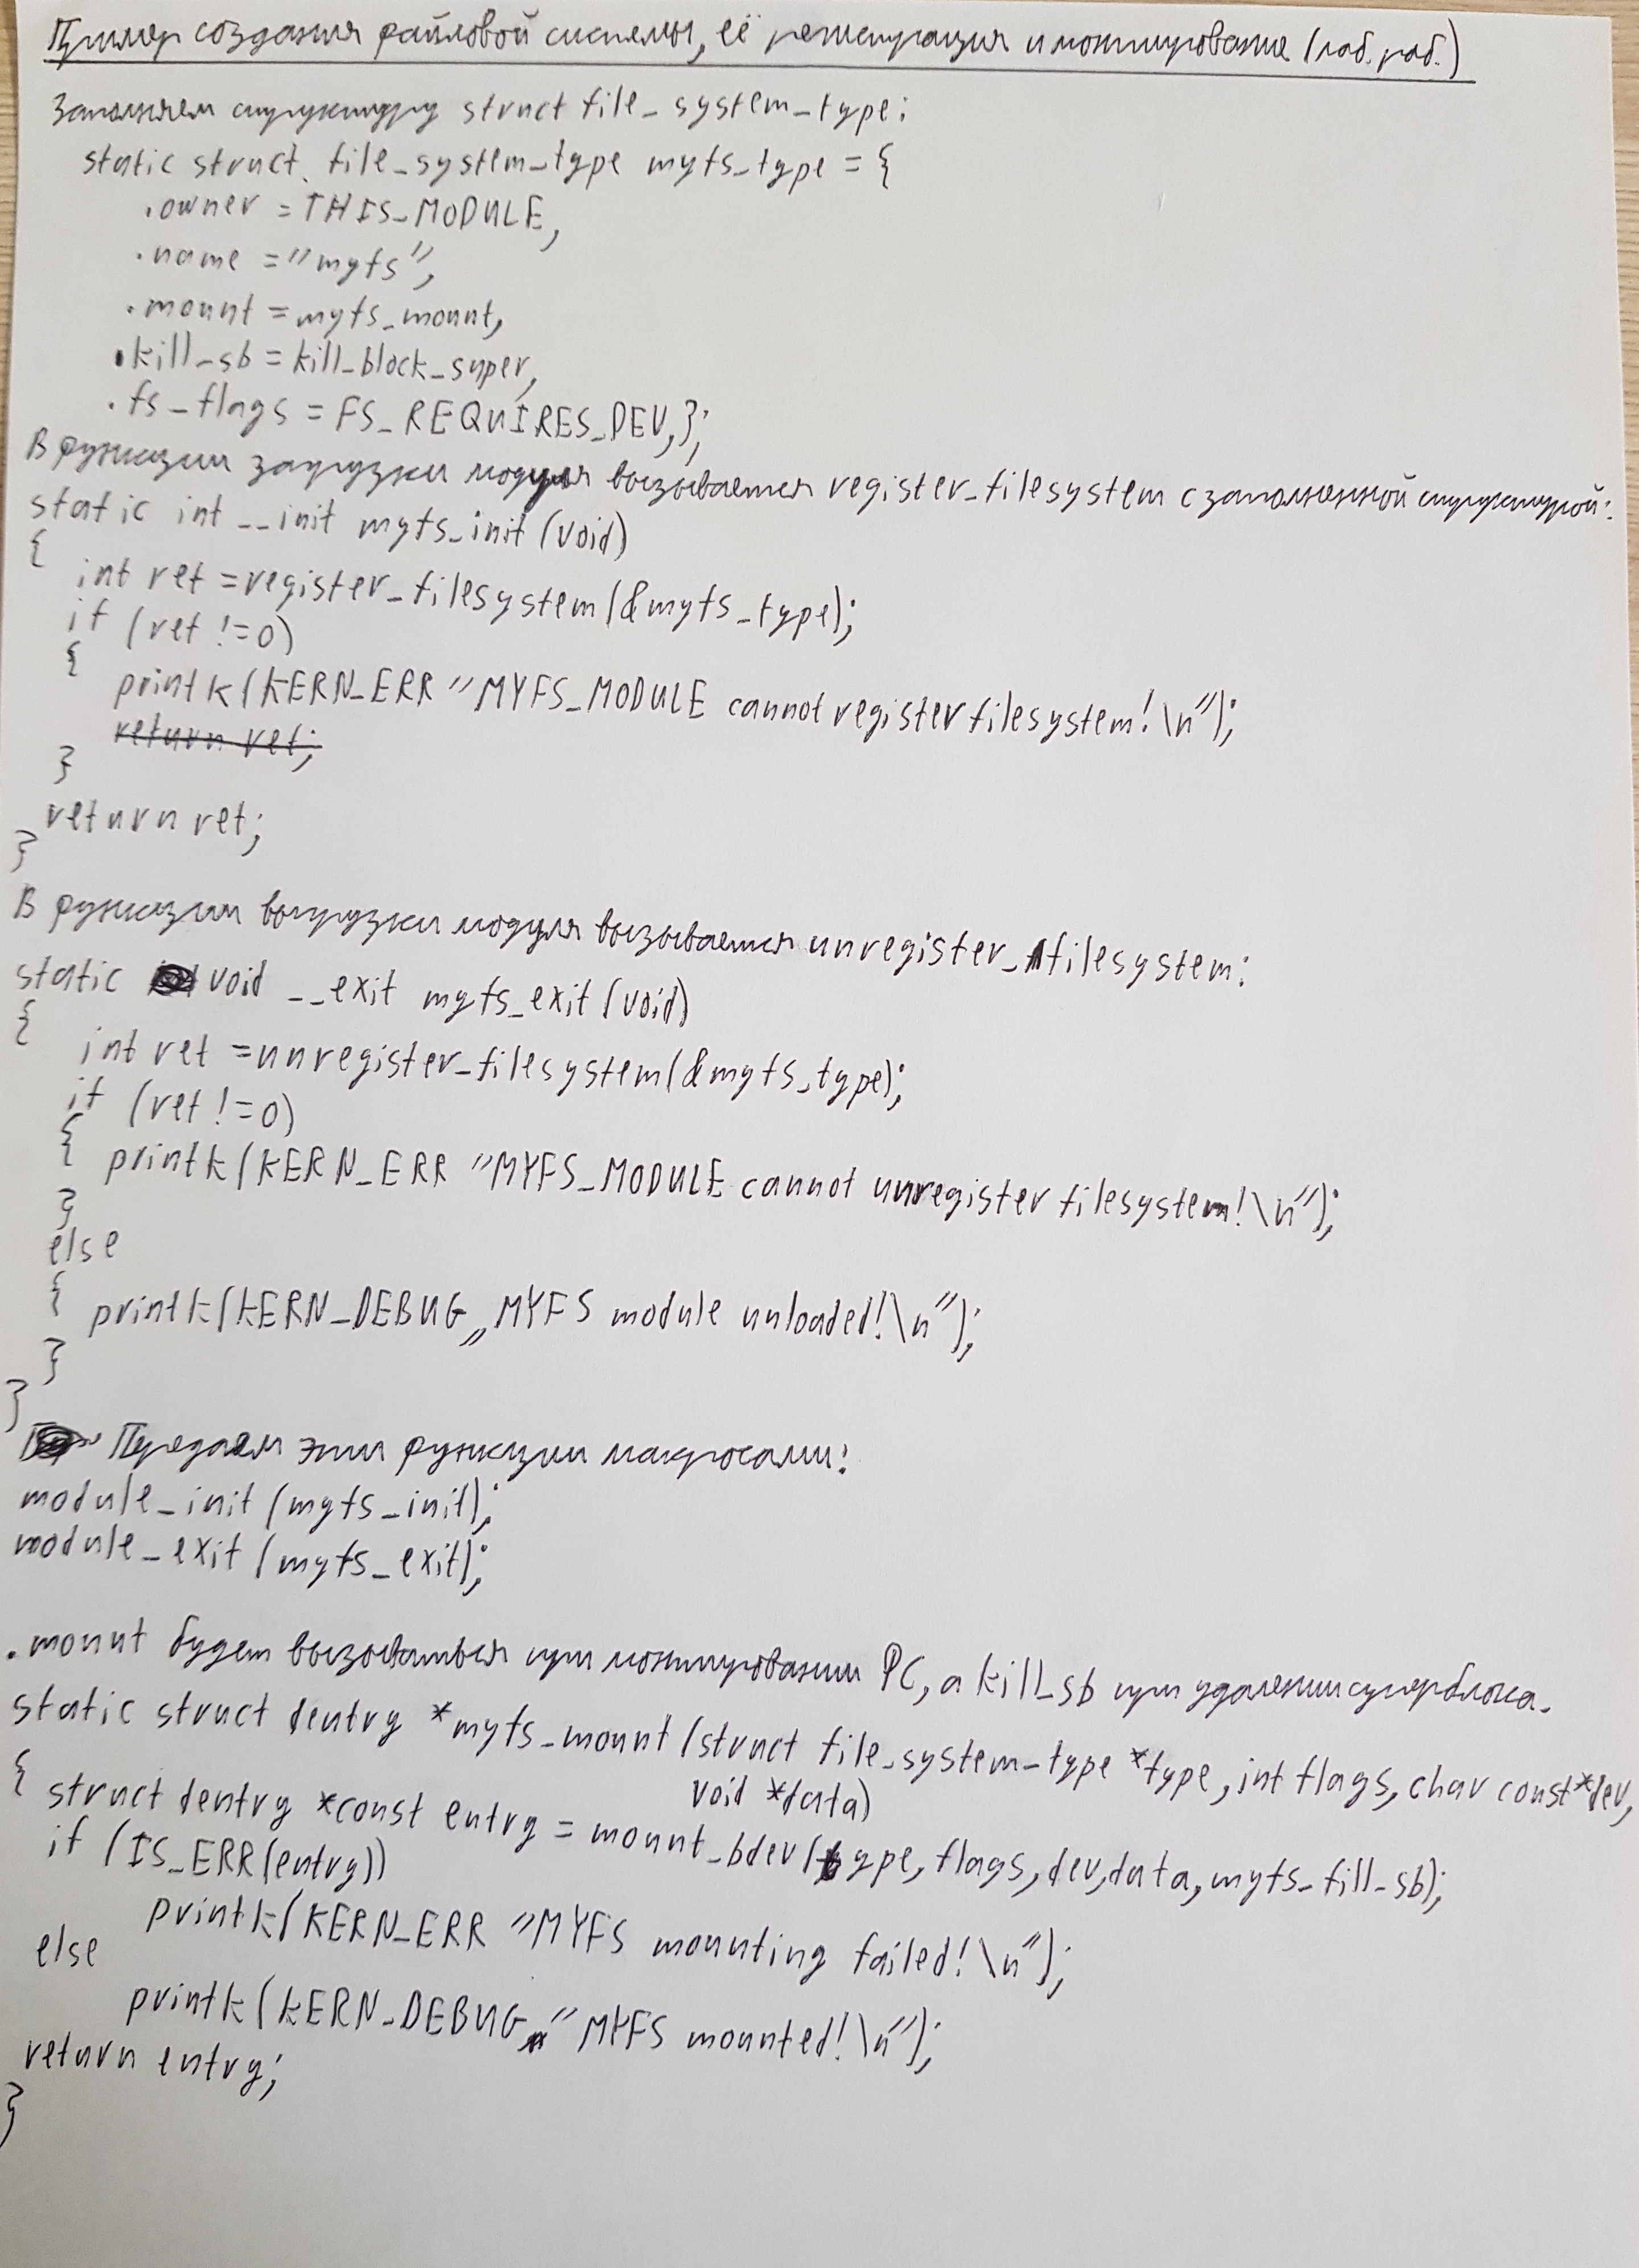 Пример создания файловой системы, её регистрация и монтирование (лаб. раб.)
Заполняем структуру struct file_system_type:
static struct file_system_type myfs_type = {
.owner = THIS_MODULE,
.name = "myfs",
.mount = myfs_mount,
.kill_sb = kill_block_super,
.fs_flags = FS_REQUIRES_DEV,};
В функции загрузки модуля вызывается register_filesystem с заполненной структурой:
static int __init myfs_init (void)
{
int ret = register_filesystem(&myfs_type);
if (ret != 0)
{
printk(KERN_ERR "MYFS_MODULE cannot register filesystem! \n");
return ret;
}
return ret;
}
В функции выгрузки модуля вызывается unregister_filesystem:
static void __exit myfs_exit (void)
{
int ret = unregister_filesystem(&myfs_type);
if (ret != 0)
{ printk(KERN_ERR "MYFS_MODULE cannot unregister filesystem! \n");
}
else
{ printk(KERN_DEBUG „MYFS module unloaded! \n");
}
}
Передаем эти функции макросами:
module_init (myfs_init);
module_exit (myfs_exit);
.mount будет вызываться при монтировании ФС, а kill_sb при удалении суперблока.
static struct dentry *myfs_mount (struct file_system_type *type, int flags, char const *dev,
void *data)
{ struct dentry *const entry = mount_bdev(type, flags, dev, data, myfs_fill_sb);
if (IS_ERR(entry))
printk(KERN_ERR "MYFS mounting failed! \n");
else
printk(KERN_DEBUG "MYFS mounted! \n");
return entry;
}